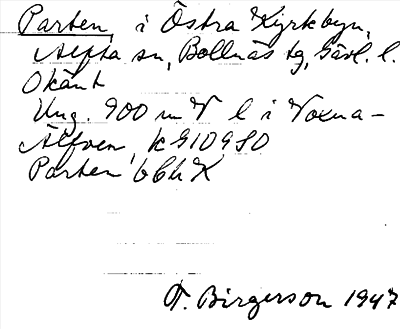 Parten, i Östra Kyrkbyn,
Alfta sn, Bollnäs tg, Gävl. l.
Okänt
Ung. 900 m V l i Voxna-
Älfven, k 910980
Parten bbhX
F. Birgerson 1947